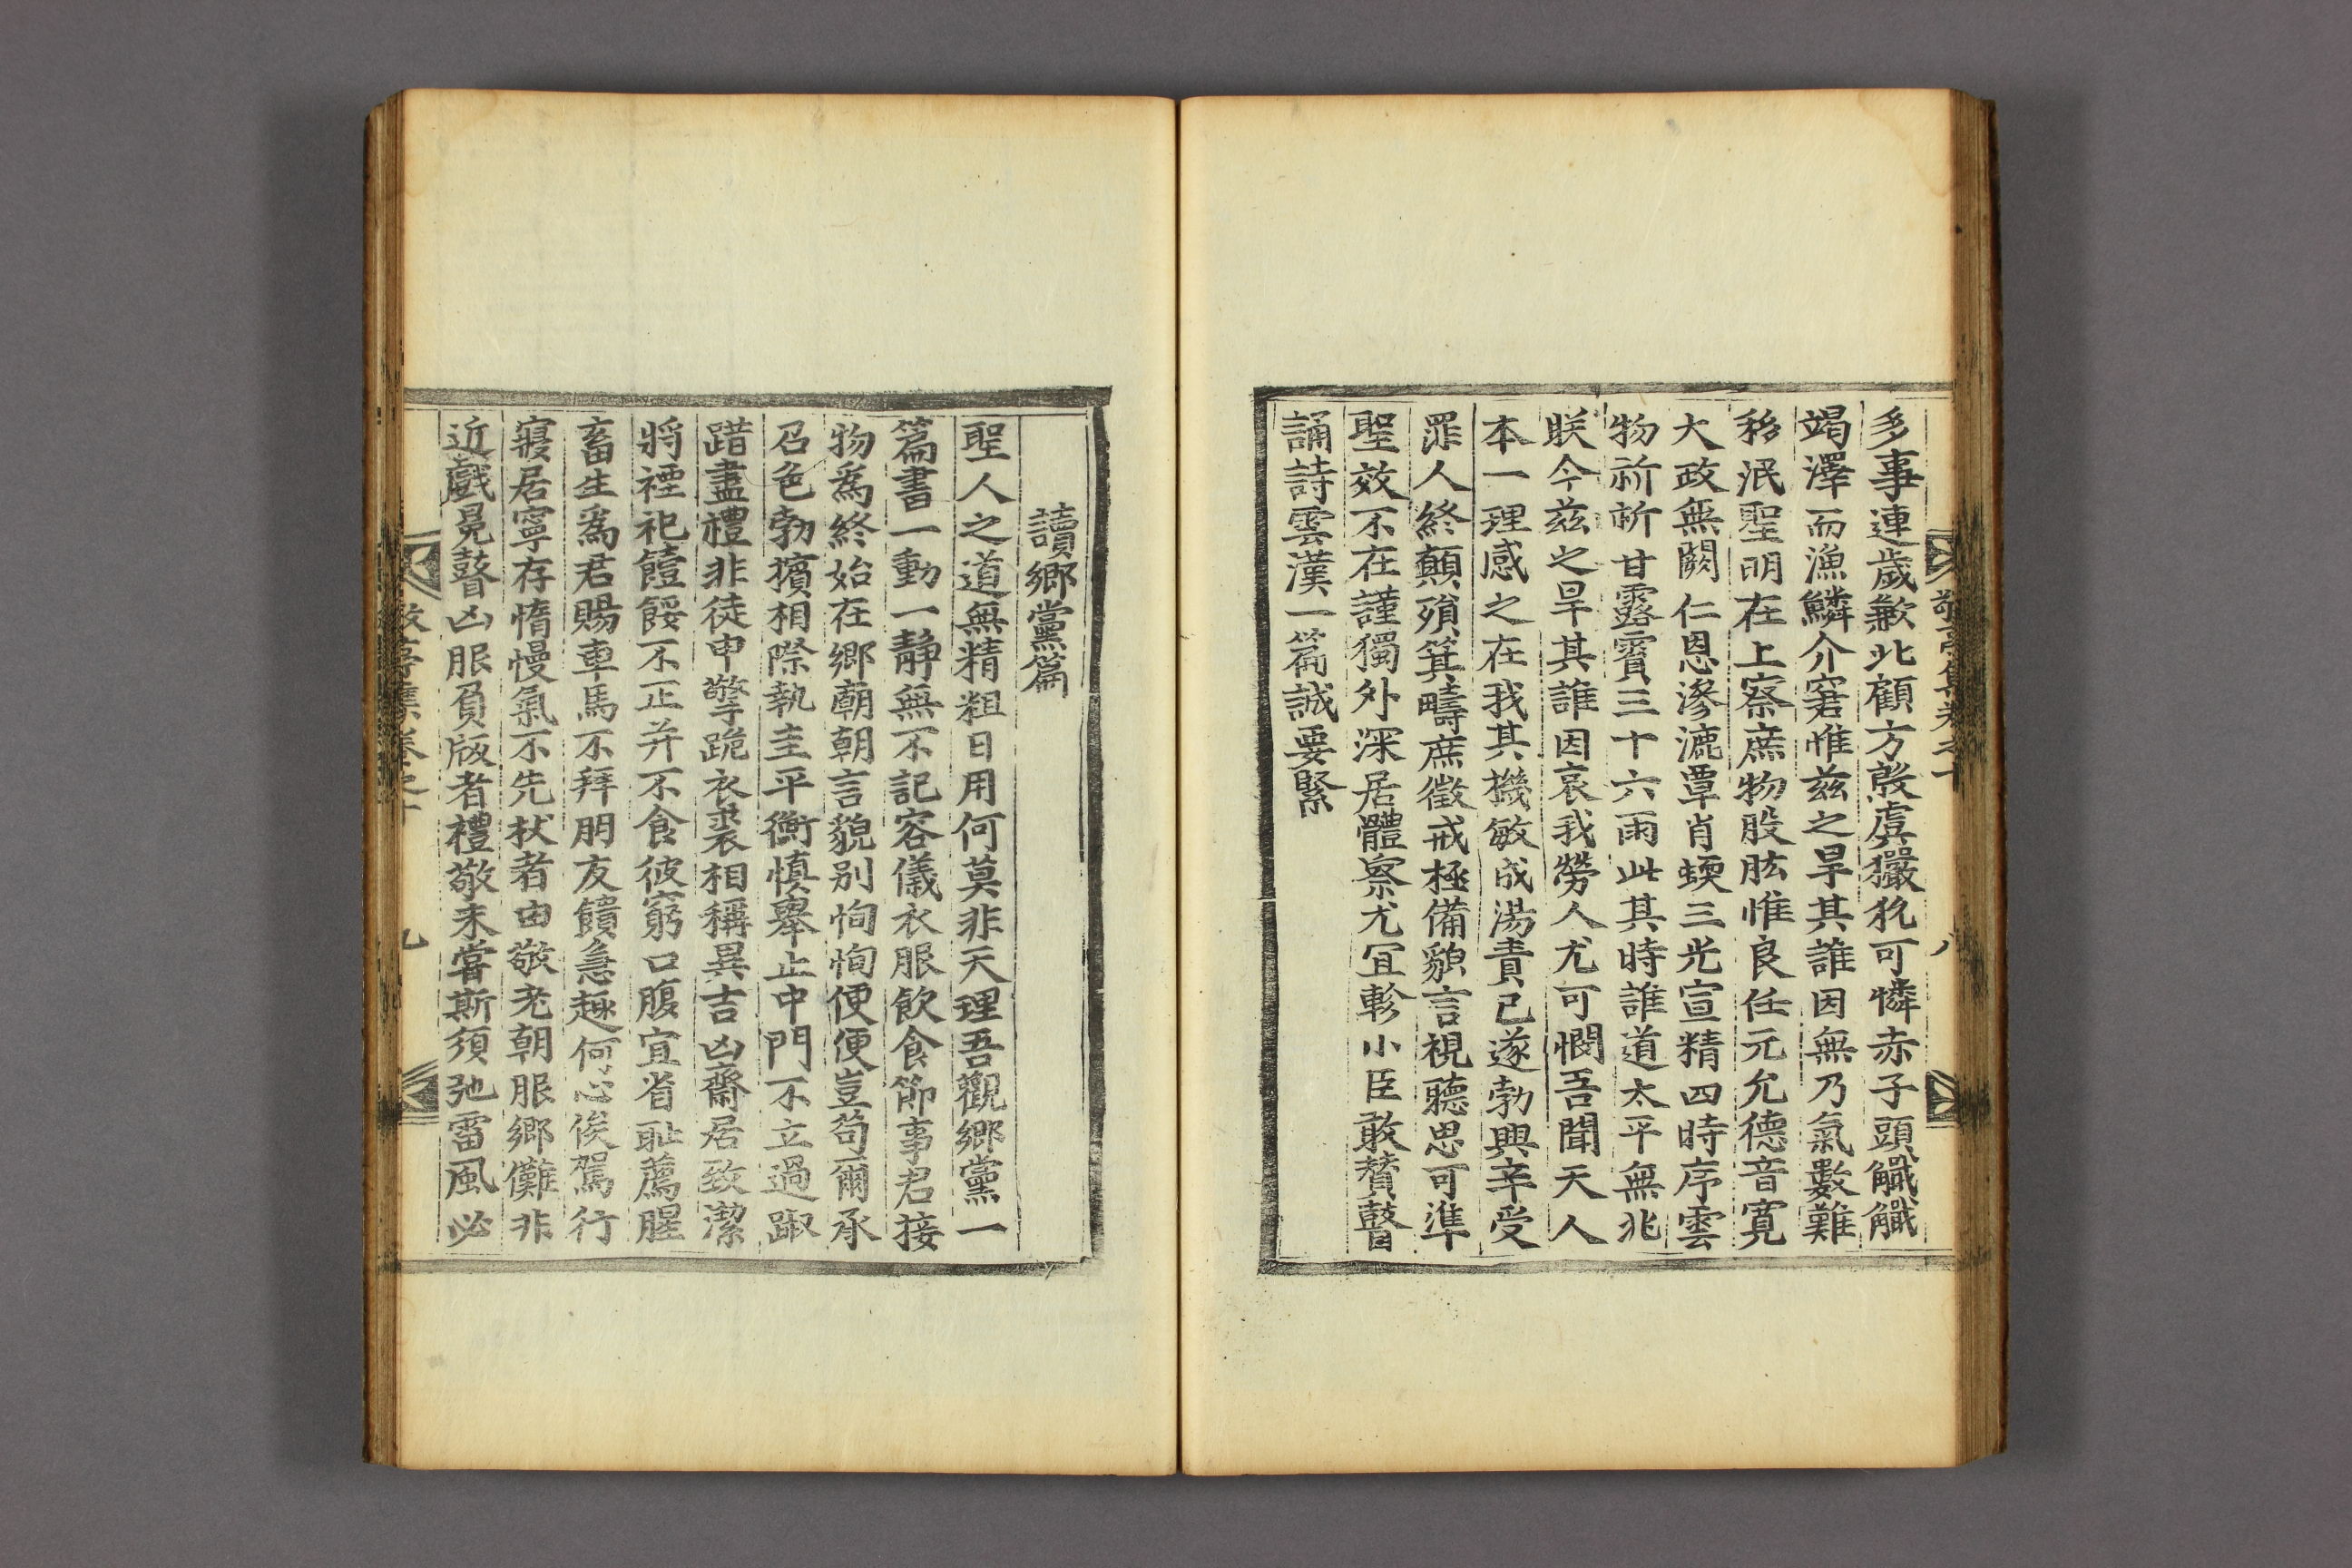 敬亭集卷之十
八
多事連歲歉北顧方殷虞玁狁可憐赤子頭觿觿
竭澤而漁鱗介窘惟茲之旱其誰因無乃氣數難
移泯聖明在上察庶物股肱惟良任元允德音寛
大政無闕仁恩滲漉覃肖蝡三光宣精四時序雲
物祈祈甘露霣三十六雨此其時誰道太平無兆
眹今茲之旱其誰因哀我勞人尤可憫吾聞天人
本一理感之在我其機敏成湯責己遂勃興辛受
罪人終顛殞箕疇庶徵戒極備貌言視聽思可準
聖效不在謹獨外深居體察尤冝軫小臣敢贊瞽
誦詩雲漢一篇誠要緊
讀鄉黨篇
聖人之道無精粗日用何莫非天理吾觀鄉黨一
篇書一動一靜無不記容儀衣服飮食節事君接
物爲終始在鄉廟朝言貌别恂恂便便豈苟爾承
召色勃擯相際執圭平衡愼擧止中門不立過踧
踖盡禮非徒申擎跪衣裘相稱異吉凶齋居致潔
將禋祀饐餒不正并不食彼窮口腹宜省耻薦腥
畜生爲君賜車馬不拜朋友饋急趍何心俟駕行
寢居寧存惰慢氣不先杖者由敬老朝服鄉儺非
近戲冕瞽凶服負版者禮敬未嘗斯須弛雷風必
敬亭集卷之十
九